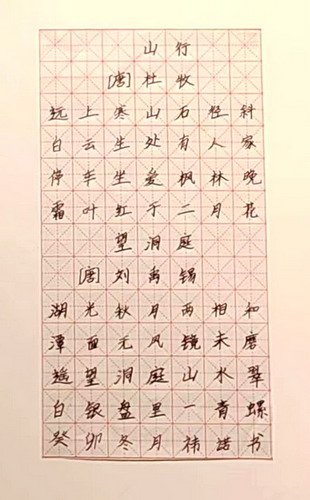 山行
[唐]杜牧
远上寒山石径斜
白云生处有人家
停车坐爱枫林晚
霜叶红于二月花
望洞庭
[唐]刘禹锡
湖光秋月两相和
潭面无风镜未磨
遥望洞庭山水翠
白银盘里一青螺
癸卯冬月祎诺书